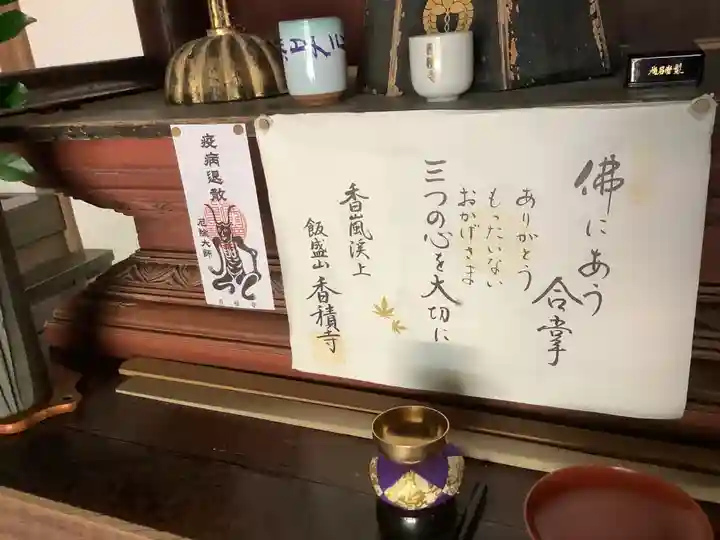 佛にあう
合掌
ありがとう
もったいない
おかげさま
三つの心を大切に
香嵐渓上
飯盛山 香積寺
疫病退散
香積寺